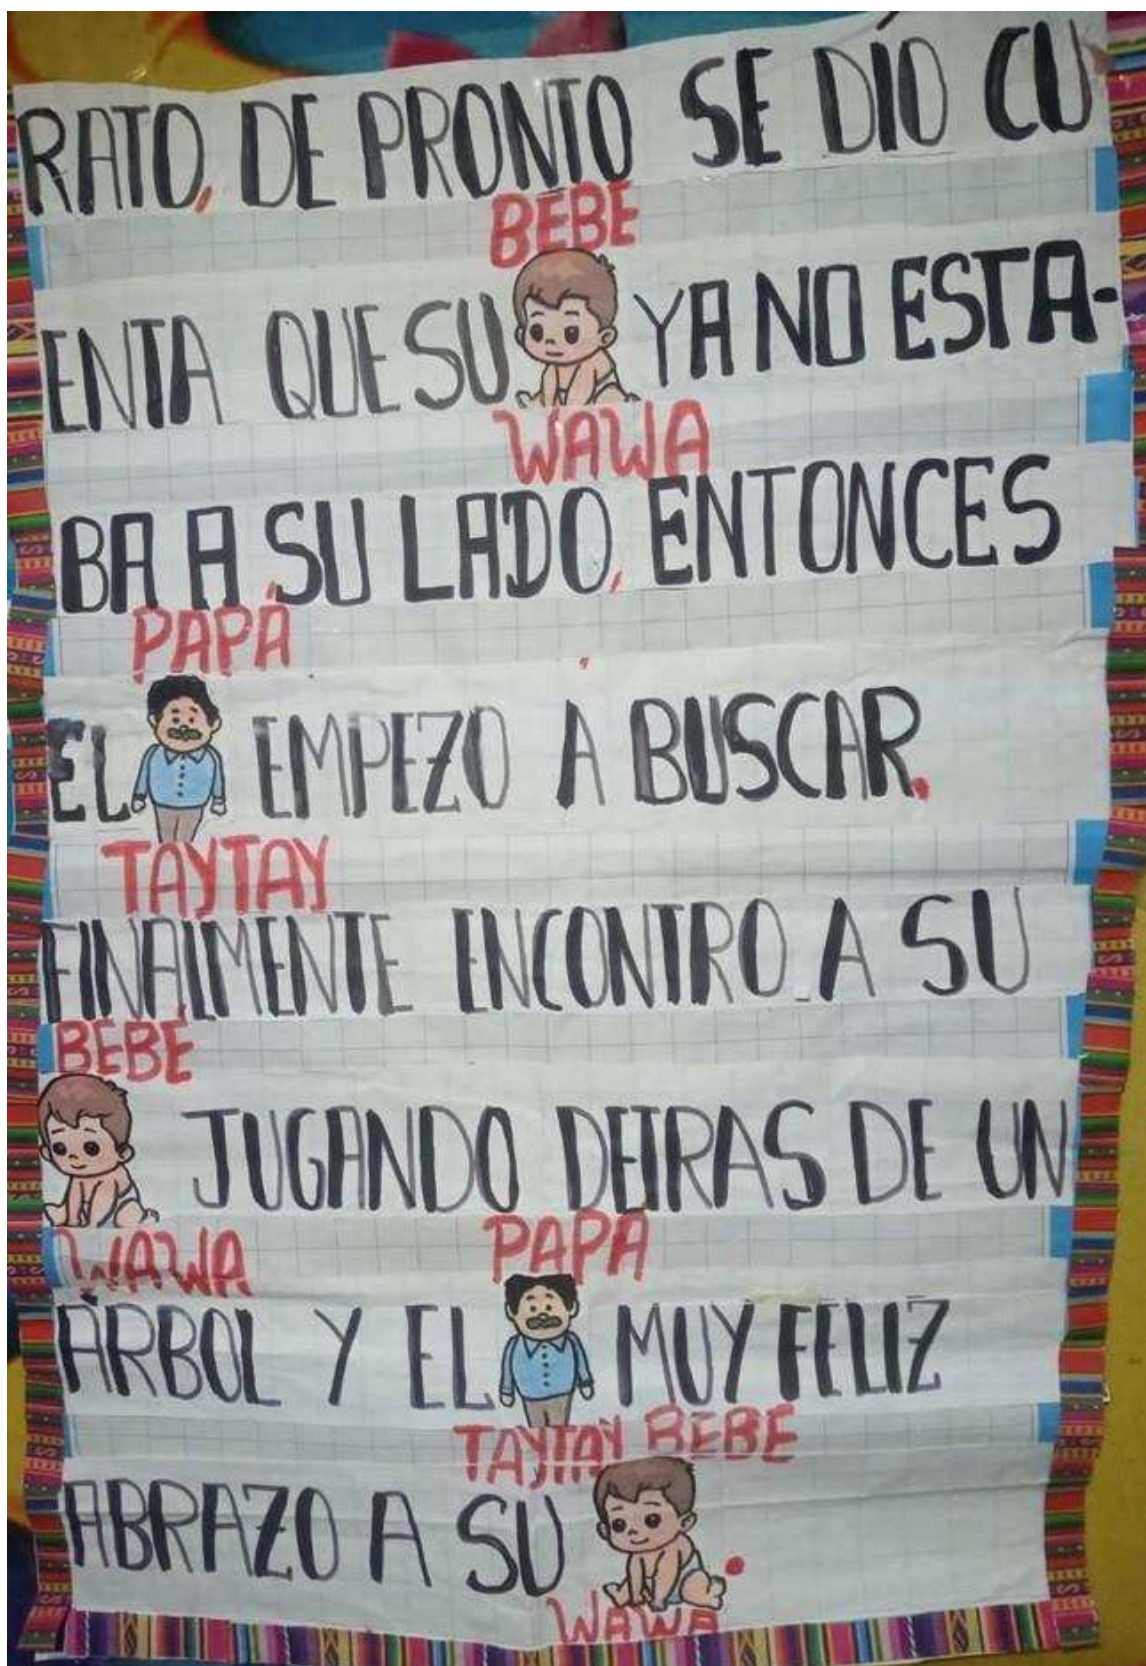 RATO, DE PRONTO SE DÍO CU
BEBE
ENTA QUE SU YA NO ESTA-
WAWA
BA A SU LADO, ENTONCES
PAPÁ
EL EMPEZO A BUSCAR.
TAYTAY
FINALMENTE ENCONTRO A SU
BEBÉ
JUGANDO DETRAS DE UN
WAWA PAPÁ
ARBOL Y EL MUY FELIZ
TAYTAY BEBE
ABRAZO A SU .
WAWA